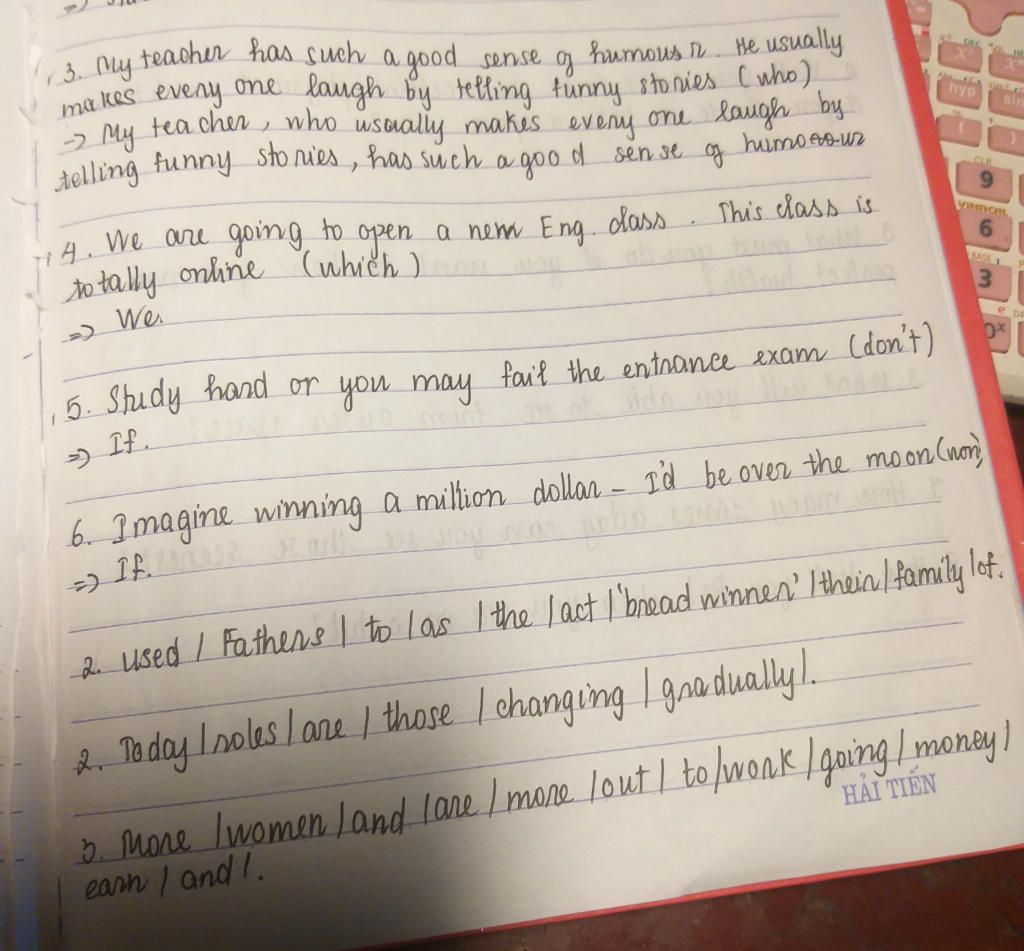 3. My teacher has such a good sense of humour. He usually
makes every one laugh by telling funny stories (who)
-> My teacher, who usually makes every one laugh by
telling funny stories, has such a good sense of humour
4. We are going to open a new Eng. class. This class is
totally online (which)
=> We
5. Study hard or you may fail the entrance exam (don't)
=> If.
6. Imagine winning a million dollar - I'd be over the moon
=> If.
2. used / Fathers / to / as / the / act / 'bread winner' / their / family / of.
2. Today / roles / are / those / changing / gradually /.
3. More / women / and / are / more / out / to / work / going / money /
earn / and /.
HẢI TIẾN
hyp
sin
9
6
3
VINACAL